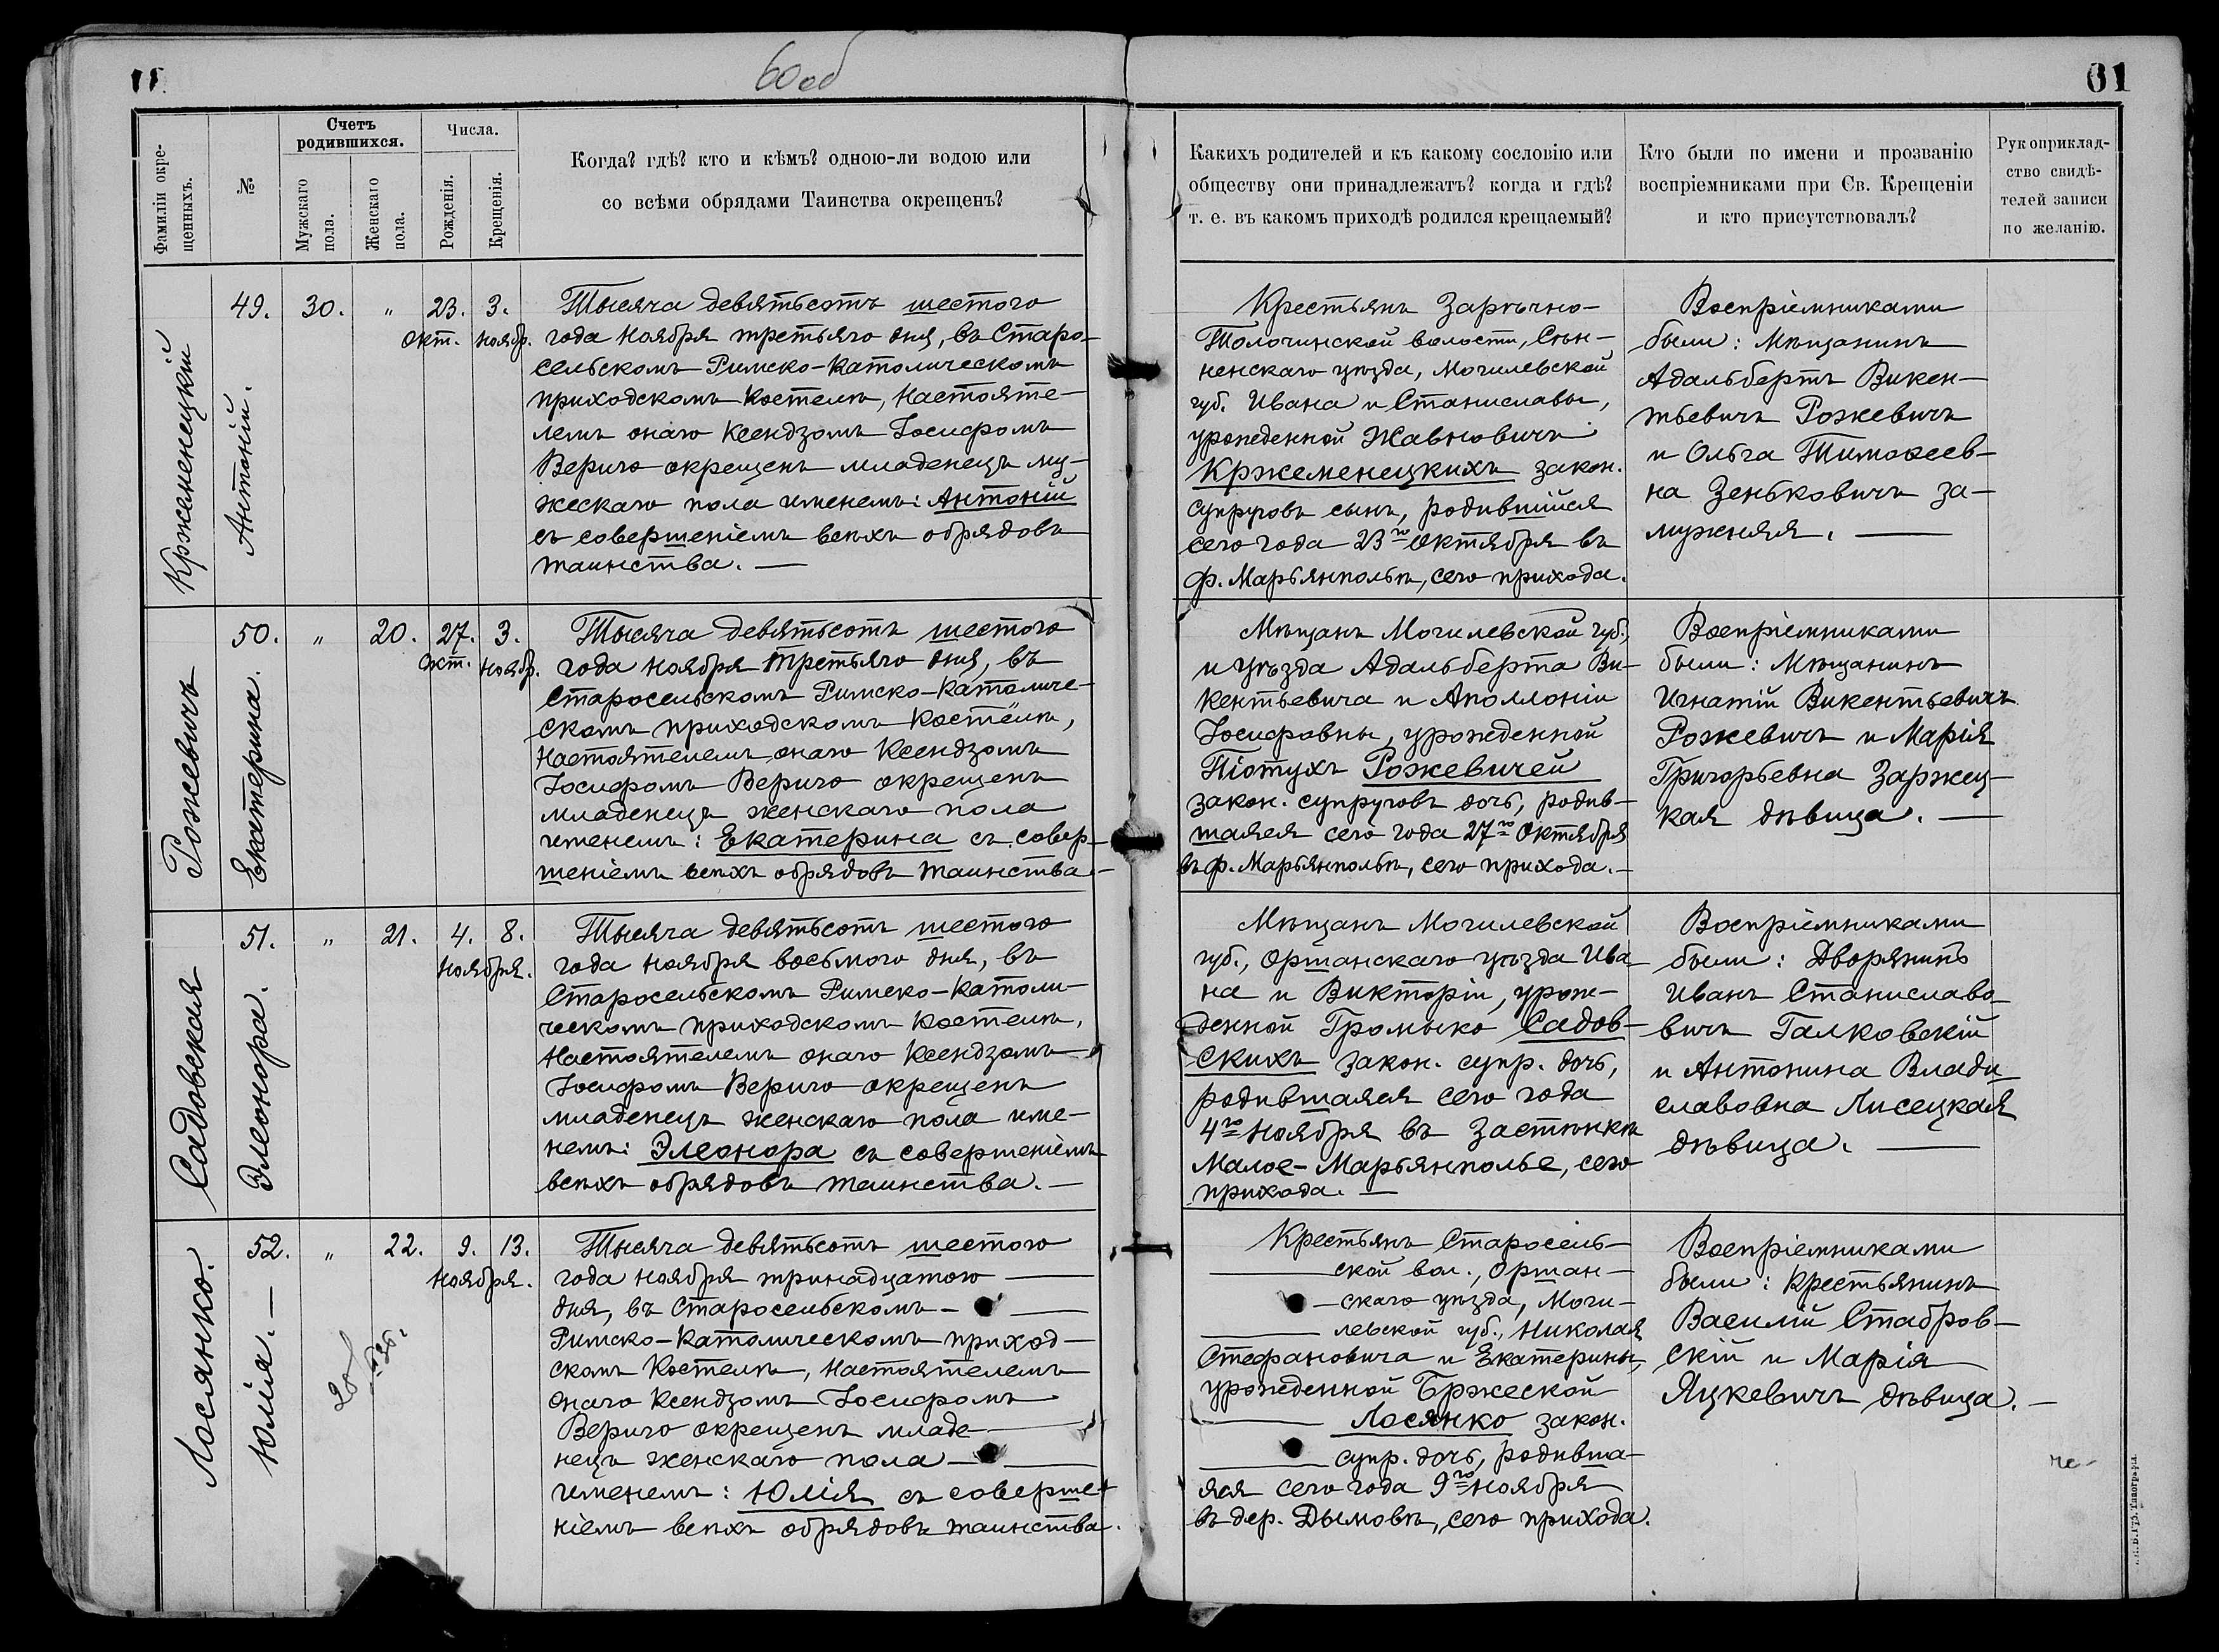 60 об
61
Фамиліи окре-
щенныхъ.
№
Счетъ
родившихся.
Мужскаго
пола.
Женскаго
пола.
Числа.
Рожденія.
Крещенія.
Когда? гдѣ? кто и кѣмъ? одною-ли водою или
со всѣми обрядами Таинства окрещенъ?
Какихъ родителей и къ какому сословію или
обществу они принадлежатъ? когда и гдѣ?
т. е. въ какомъ приходѣ родился крещаемый?
Кто были по имени и прозванію
воспріемниками при Св. Крещеніи
и кто присутствовалъ?
Рукоприклад-
ство свидѣ-
телей записи
по желанію.
Кржеменецкій
Антоній.
49. 30. " 23. 3.
Окт. Ноябр.
Тысяча девятьсотъ шестого
года Ноября третьяго дня, въ Старо-
сельскомъ Римско-Католическомъ
приходскомъ Костелѣ, Настояте-
лемъ онаго Ксендзомъ Іосифомъ
Вериго окрещенъ младенецъ му-
жескаго пола именемъ: Антоній
съ совершеніемъ всѣхъ обрядовъ
таинства. —
Крестьянъ Зарѣчно-
Толочинской волости, Сѣн-
ненскаго уѣзда, Могилевской
губ. Ивана и Станиславы,
урожденной Жавновичъ
Кржеменецкихъ закон.
супруговъ сынъ, родившійся
сего года 23го Октября въ
ф. Марьянпольѣ, сего прихода.
Воспріемниками
были: Мѣщанинъ
Адальбертъ Викен-
тьевичъ Рожевичъ
и Ольга Тимоѳеев-
на Зеньковичъ за-
мужняя. —
Рожевичъ
Екатерина.
50. " 20. 27. 3.
Окт. Ноябр.
Тысяча девятьсотъ шестого
года Ноября третьяго дня, въ
Старосельскомъ Римско-Католиче-
скомъ приходскомъ Костелѣ,
Настоятелемъ онаго Ксендзомъ
Іосифомъ Вериго окрещенъ
младенецъ женскаго пола
именемъ: Екатерина съ совер-
шеніемъ всѣхъ обрядовъ таинства. —
Мѣщанъ Могилевской губ.,
и уѣзда Адальберта Ви-
кентьевича и Аполлоніи
Іосифовны, урожденной
Піотухъ Рожевичей
закон. супруговъ дочь, родив-
шаяся сего года 27го Октября
въ ф. Марьянпольѣ, сего прихода. —
Воспріемниками
были: Мѣщанинъ
Игнатій Викентьевичъ
Рожевичъ и Марія
Григорьевна Заржец-
кая дѣвица. —
Садовская
Элеонора.
51. " 21. 4. 8.
Ноября.
Тысяча девятьсотъ шестого
года Ноября восьмого дня, въ
Старосельскомъ Римско-Католи-
ческомъ приходскомъ Костелѣ,
Настоятелемъ онаго Ксендзомъ
Іосифомъ Вериго окрещенъ
младенецъ женскаго пола име-
немъ: Элеонора съ совершеніемъ
всѣхъ обрядовъ таинства. —
Мѣщанъ Могилевской
губ., Оршанскаго уѣзда Ива-
на и Викторіи, урож-
денной Громыко Садов-
скихъ закон. супр. дочь,
родившаяся сего года
4го Ноября въ Застѣнкѣ
Малое-Марьянполье, сего
прихода. —
Воспріемниками
были: Дворянинъ
Иванъ Станиславо-
вичъ Галковскій
и Антонина Влади-
славовна Лисецкая
дѣвица. —
Лосянко.
Юлія. —
52. " 22. 9. 13.
Ноября.
Тысяча девятьсотъ шестого
года Ноября тринадцатого —
дня, въ Старосельскомъ —
Римско-Католическомъ приход-
скомъ Костелѣ, Настоятелемъ
онаго Ксендзомъ Іосифомъ
Вериго окрещенъ младе-
нецъ женскаго пола —
именемъ: Юлія съ соверше-
ніемъ всѣхъ обрядовъ таинства.
Крестьянъ Старосель-
ской вол., Оршан-
скаго уѣзда, Моги-
левской губ., Николая
Стефановича и Екатерины,
урожденной Бржеской
Лосянко закон.
супр. дочь, родивша-
яся сего года 9го Ноября
въ дер. Дымовѣ, сего прихода.
Воспріемниками
были: Крестьянинъ
Василій Стабров-
скій и Марія
Яцкевичъ дѣвица. —